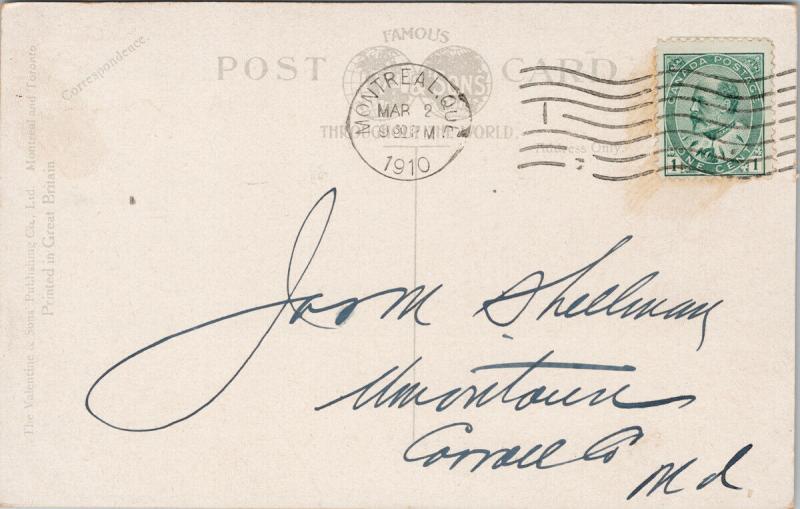 FAMOUS
POST CARD
& SONS
THROUGHOUT THE WORLD.
Correspondence.
Address Only.
The Valentine & Sons Publishing Co., Ltd. Montreal and Toronto
Printed in Great Britain
MONTREAL, QUE
MAR 2
PM
1910
CANADA POSTAGE
1 ONE CENT 1
Jas M Shellman
Uniontown
Carroll Co
Md